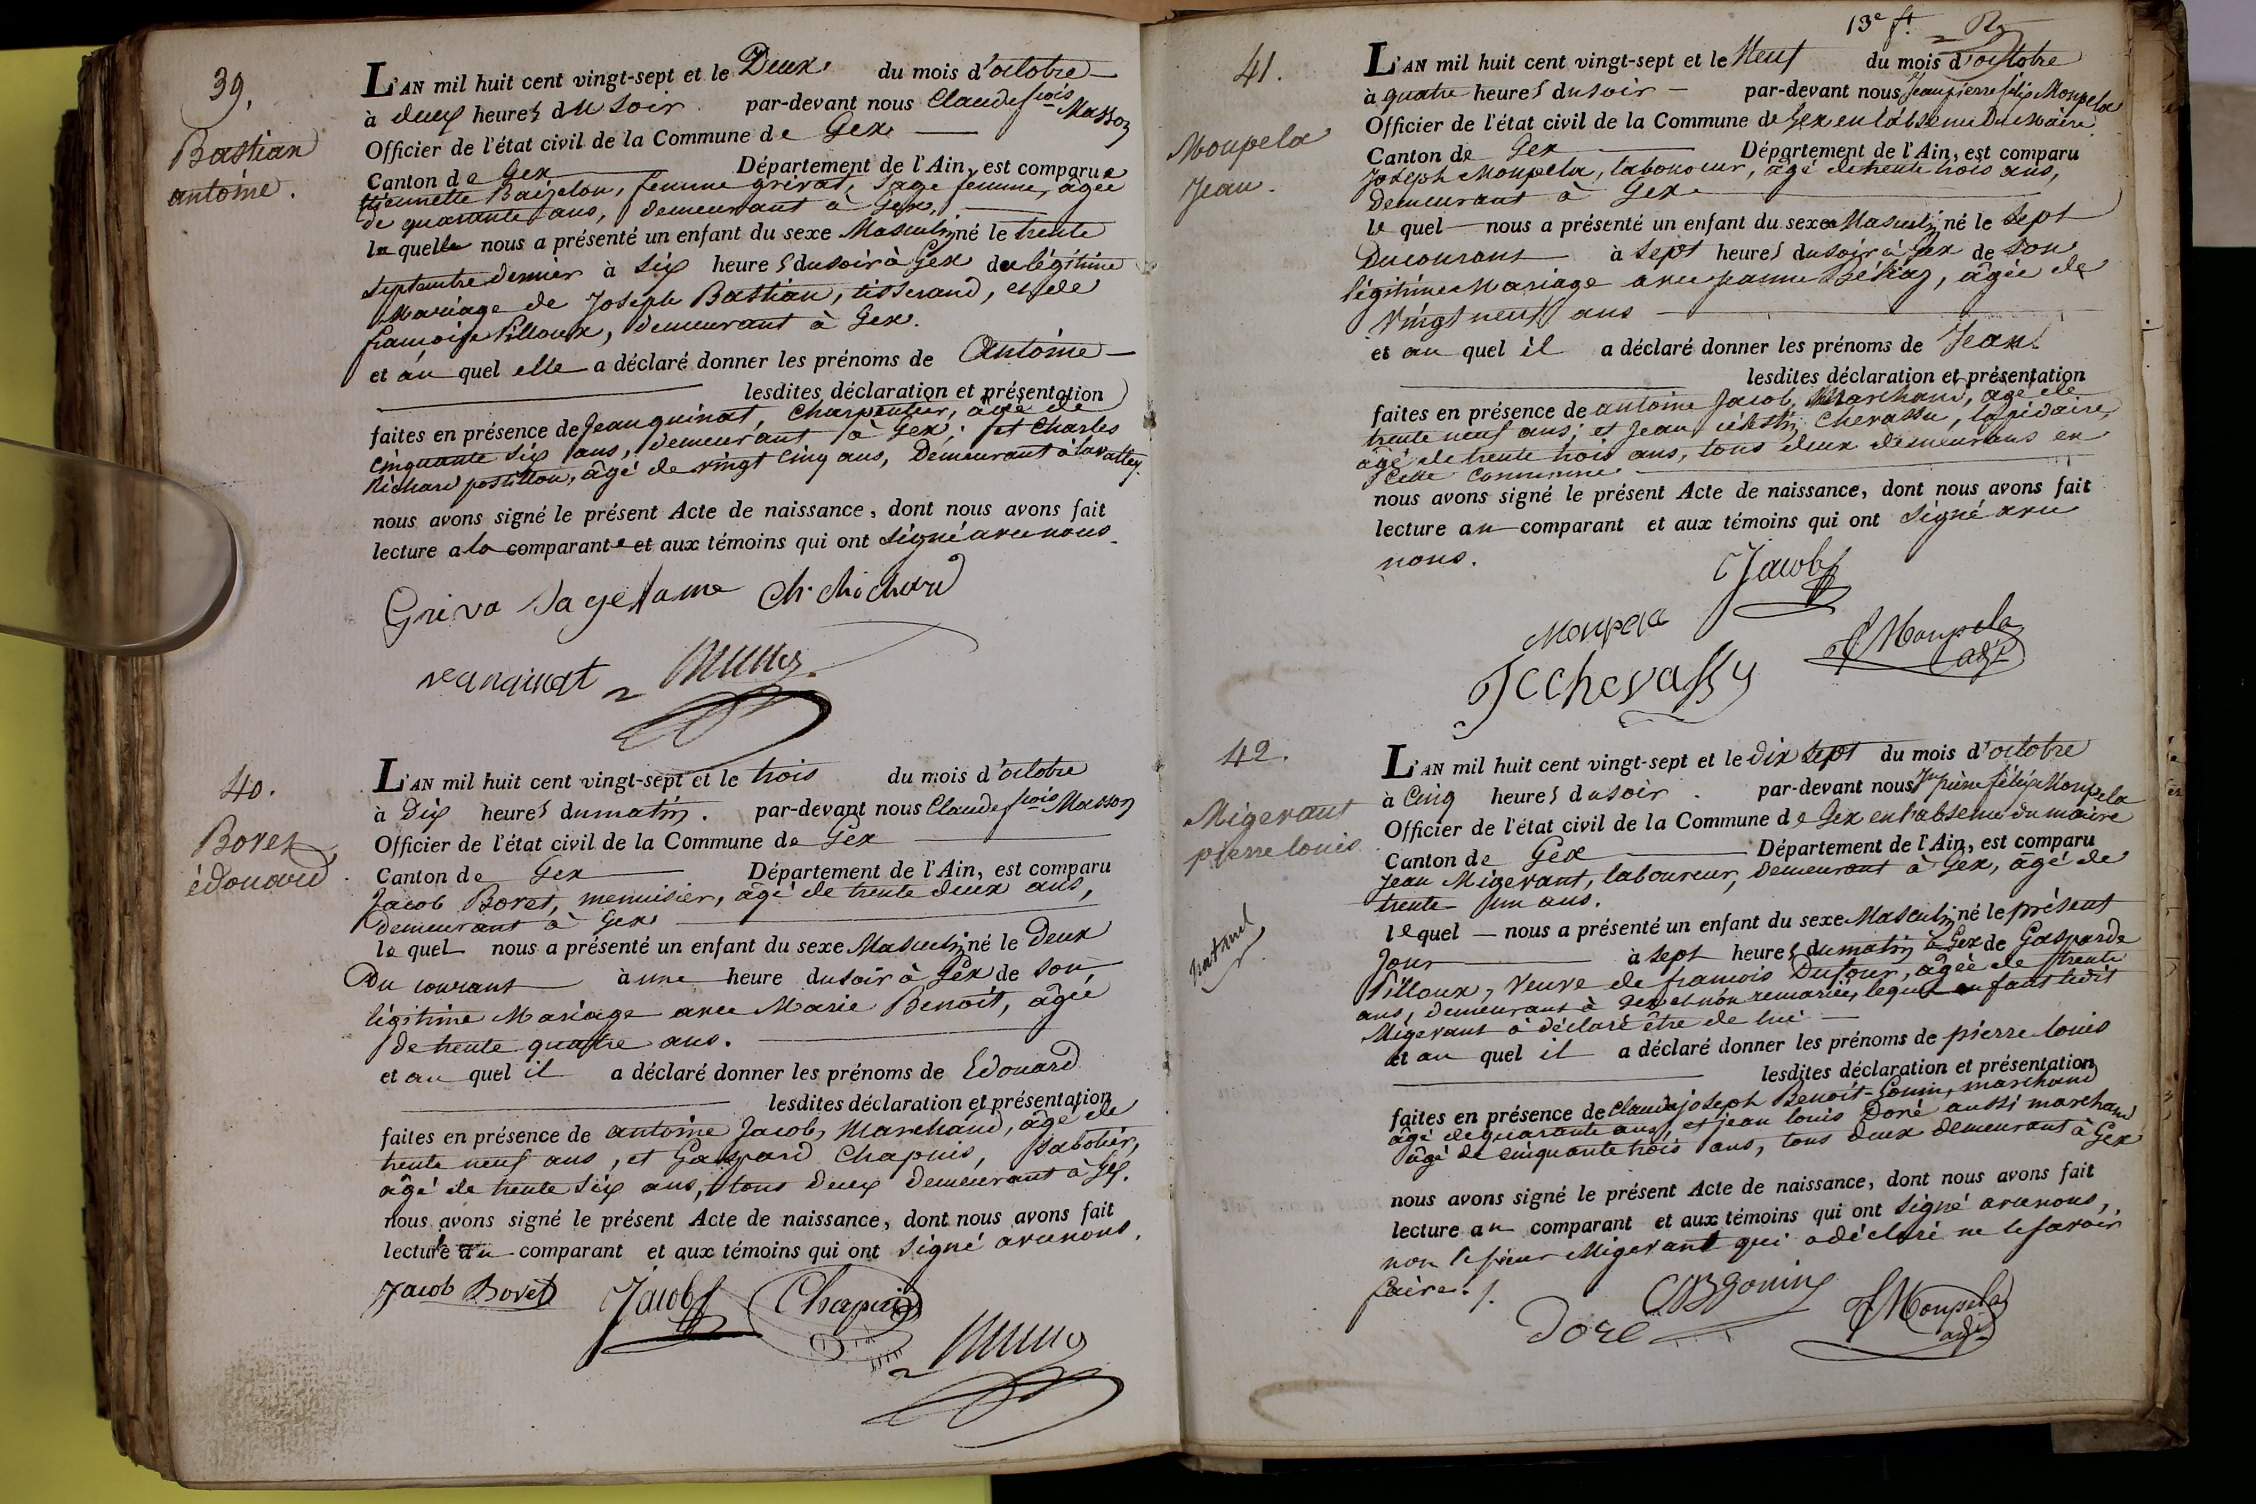 39.
Bastian
antoine.
L'AN mil huit cent vingt-sept et le Deux du mois d'octobre
à deux heures du soir par-devant nous Claude fcois Masson
Officier de l'état civil de la Commune de Gex
Canton de Gex Département de l'Ain, est comparue
étiennette Baizelon, femme grivat, Sage femme, âgée
de quarante ans, demeurant à Gex,
la quelle nous a présenté un enfant du sexe Masculin né le trente
septembre dernier à six heures du soir à Gex du légitime
Mariage de Joseph Bastian, tisserand, et de
françoise Pilloux, demeurant à Gex.
et au quel elle a déclaré donner les prénoms de Antoine
lesdites déclaration et présentation
faites en présence de Jean guinat, Charpentier, âgé de
Cinquante six ans, demeurant à Gex; et Charles
Richard postillon, âgé de vingt Cinq ans, Demeurant à lavattay.
nous avons signé le présent Acte de naissance, dont nous avons fait
lecture a la comparante et aux témoins qui ont signé avec nous.
Griva Sagefame Ch. Richard
40.
Boret
édouard
L'AN mil huit cent vingt-sept et le trois du mois d'octobre
à Dix heures du matin. par-devant nous Claude fcois Masson
Officier de l'état civil de la Commune de Gex
Canton de Gex Département de l'Ain, est comparu
Jacob Boret, menuisier, âgé de trente deux ans,
demeurant à Gex
le quel nous a présenté un enfant du sexe Masculin né le deux
Du courant à une heure du soir à Gex de son
légitime Mariage avec Marie Benoit, âgée
de trente quatre ans.
et au quel il a déclaré donner les prénoms de Edouard
lesdites déclaration et présentation
faites en présence de antoine Jacob, Marchand, âgé de
trente neuf ans, et Gaspard Chapuis, Sabotier,
âgé de trente six ans, tous deux demeurant à Gex.
nous avons signé le présent Acte de naissance, dont nous avons fait
lecture au comparant et aux témoins qui ont signé avec nous.
Jacob Boret Jacob Chapuis
13e ft.
41.
Moupela
Jean.
L'AN mil huit cent vingt-sept et le Neuf du mois d'octobre
à quatre heures du soir par-devant nous Jean pierre félix Moupela
Officier de l'état civil de la Commune de Gex en l'absence du Maire
Canton de Gex Département de l'Ain, est comparu
Joseph Moupela, laboureur, âgé de trente trois ans,
Demeurant à Gex
le quel nous a présenté un enfant du sexe Masculin né le sept
Du courant à sept heures du soir à Gex de son
légitime Mariage avec jeanne, âgée de
vingt neuf ans
et au quel il a déclaré donner les prénoms de Jean.
lesdites déclaration et présentation
faites en présence de antoine Jacob, Marchand, âgé de
trente neuf ans; et Jean célestin Chevassu, lapidaire,
âgé de trente trois ans, tous deux demeurans en
Cette Commune.
nous avons signé le présent Acte de naissance, dont nous avons fait
lecture au comparant et aux témoins qui ont signé avec
nous.
Jacob
Moupela
JC chevassu
f Moupela
adjt
42.
Migevant
pierre louis
naturel
L'AN mil huit cent vingt-sept et le dix sept du mois d'octobre
à Cinq heures du soir. par-devant nous Jn pierre félix Moupela
Officier de l'état civil de la Commune de Gex en l'absence du maire
Canton de Gex Département de l'Ain, est comparu
Jean Migevant, laboureur, Demeurant à Gex, âgé de
trente un ans.
le quel nous a présenté un enfant du sexe Masculin né le présent
Jour à sept heures du matin à Gex de Gasparde
Pilloux, Veuve de françois Dufour, âgée de trente
ans, demeurant à Gex et non remariée, lequel enfant ledit
Migevant à déclaré être de lui
et au quel il a déclaré donner les prénoms de pierre louis
lesdites déclaration et présentation
faites en présence de Claude joseph Benoit-Gonin, marchand
âgé de quarante ans, et jean louis Doré aussi marchand
âgé de cinquante trois ans, tous deux demeurant à Gex
nous avons signé le présent Acte de naissance, dont nous avons fait
lecture au comparant et aux témoins qui ont signé avec nous,
non le sieur Migevant qui a déclaré ne le savoir
faire./.
CBGonin
Doré
f Moupela
adjt